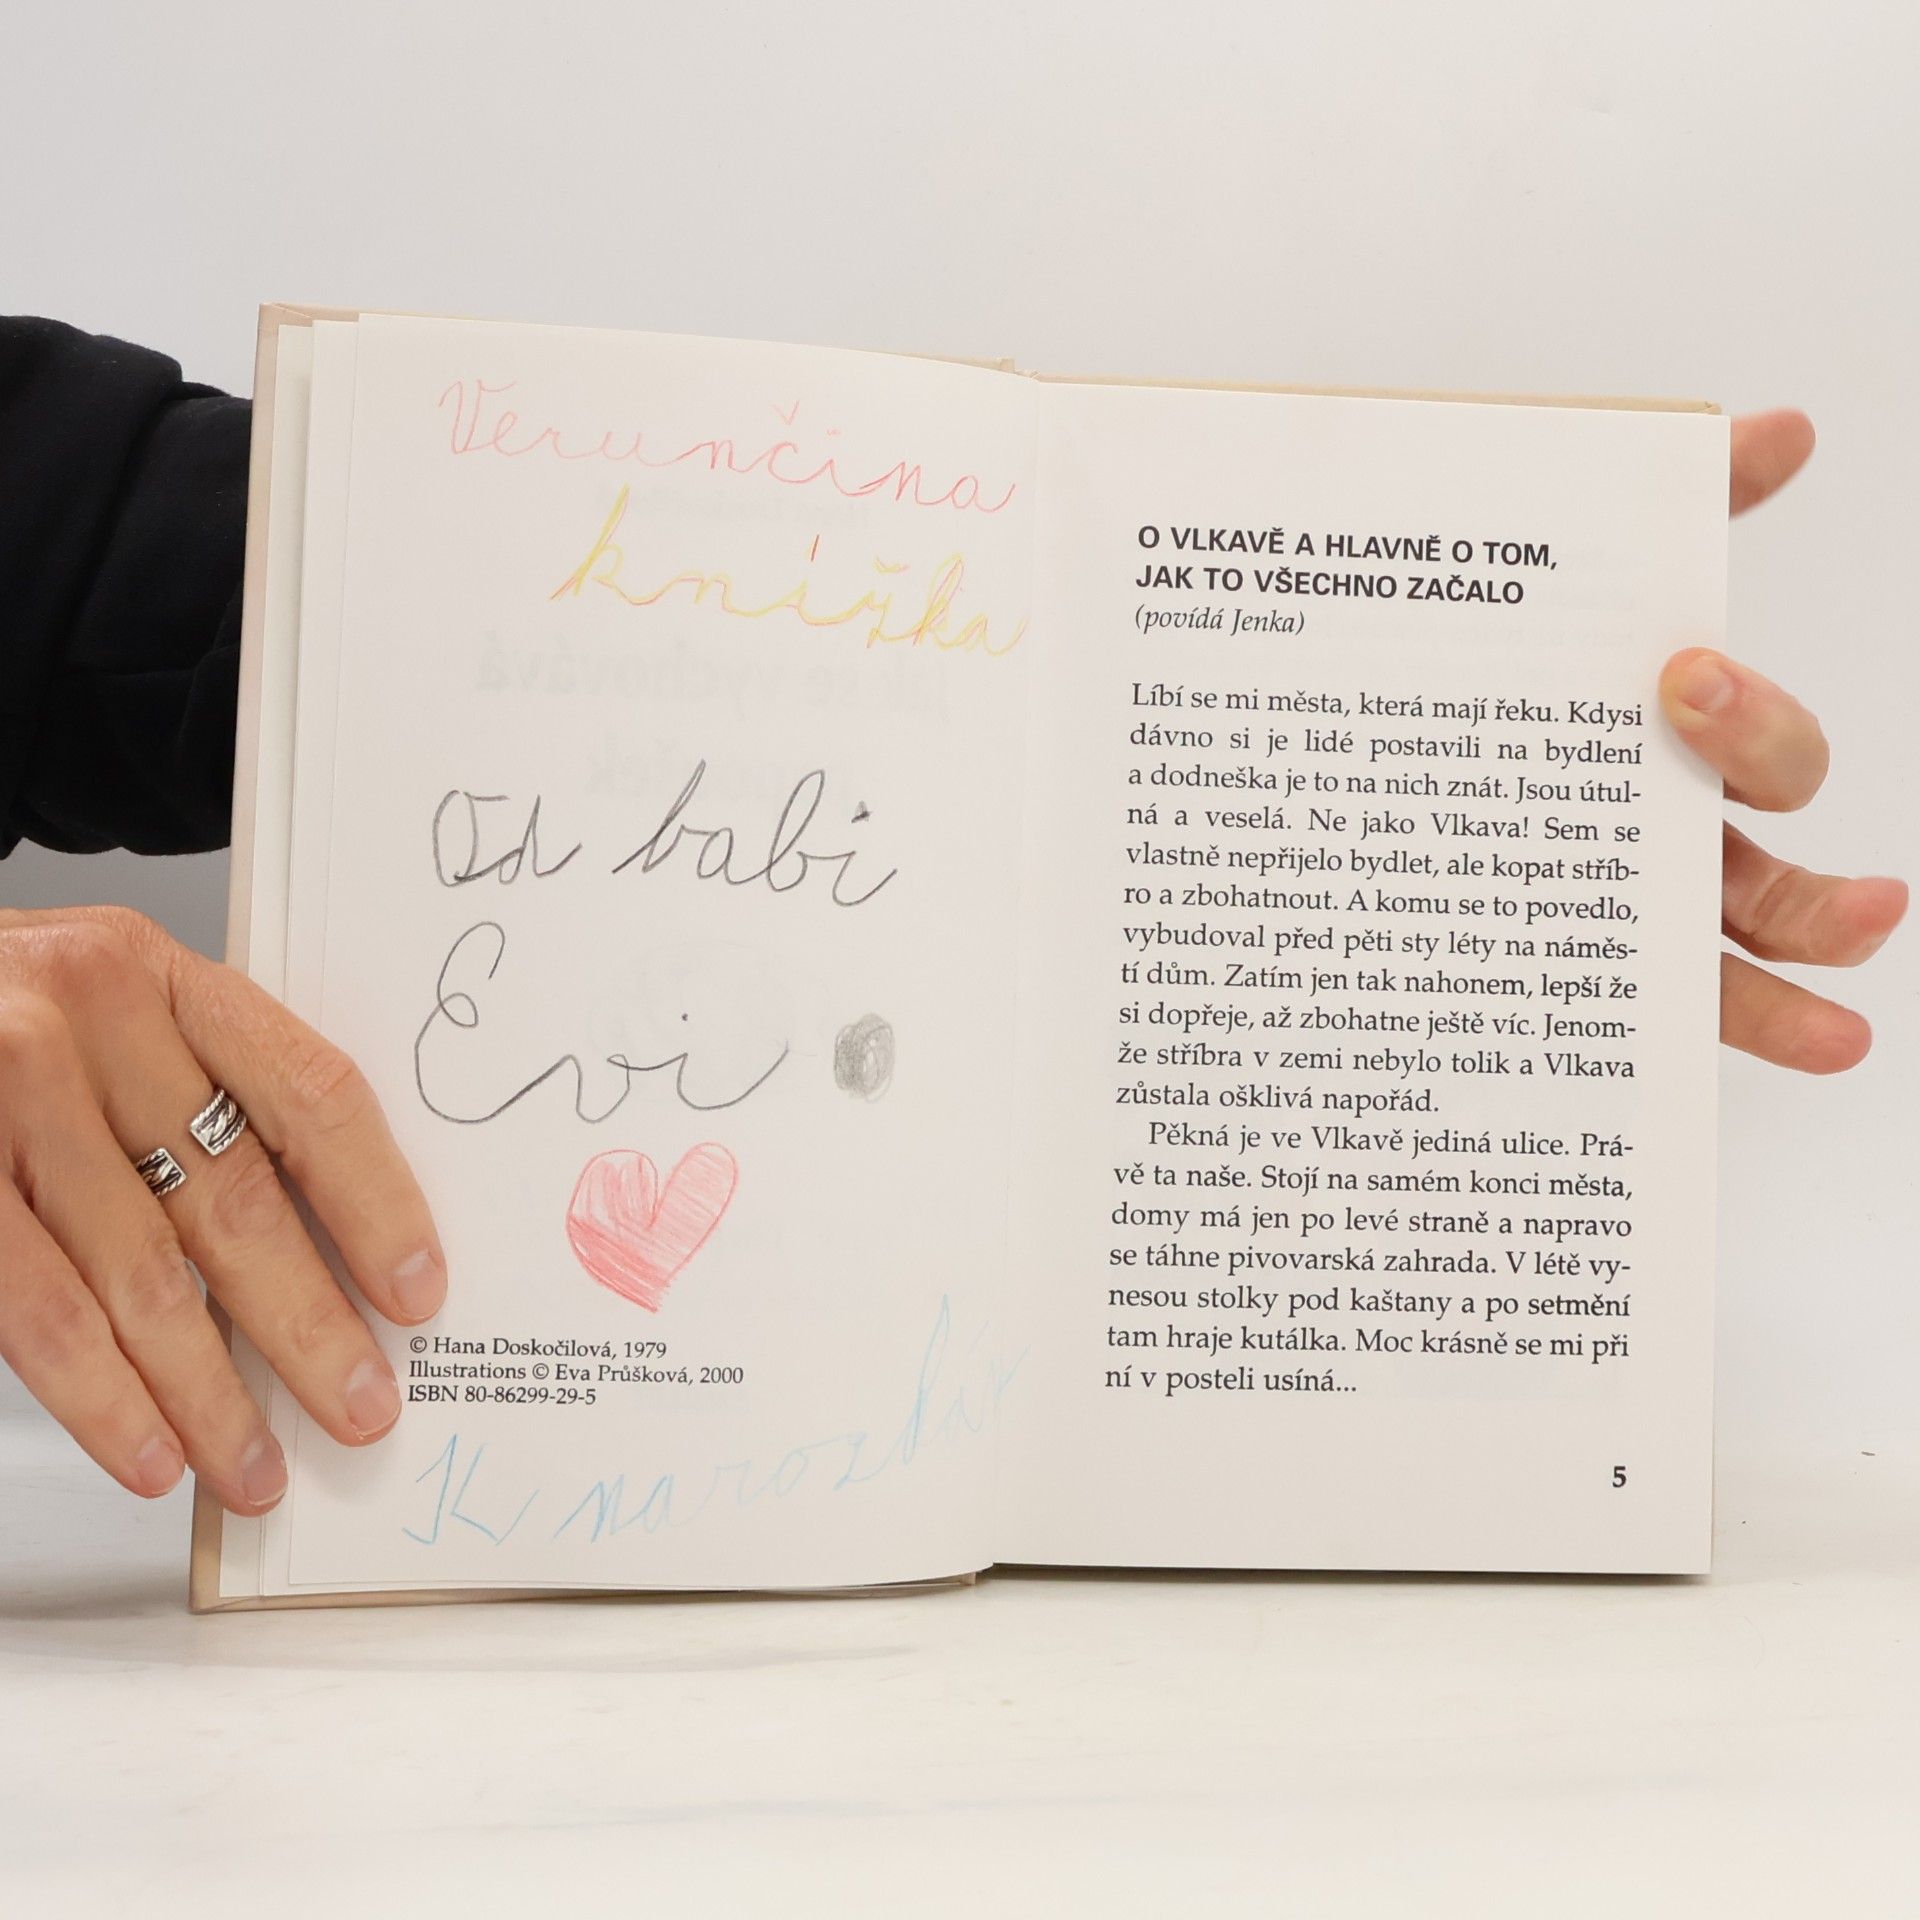 Verunčina
knížka
Od babi
Evi
© Hana Doskočilová, 1979
Illustrations © Eva Průšková, 2000
ISBN 80-86299-29-5
K
O VLKAVĚ A HLAVNĚ O TOM,
JAK TO VŠECHNO ZAČALO
(povídá Jenka)
Líbí se mi města, která mají řeku. Kdysi
dávno si je lidé postavili na bydlení
a dodneška je to na nich znát. Jsou útul-
ná a veselá. Ne jako Vlkava! Sem se
vlastně nepřijelo bydlet, ale kopat stříb-
ro a zbohatnout. A komu se to povedlo,
vybudoval před pěti sty léty na náměs-
tí dům. Zatím jen tak nahonem, lepší že
si dopřeje, až zbohatne ještě víc. Jenom-
že stříbra v zemi nebylo tolik a Vlkava
zůstala ošklivá napořád.
Pěkná je ve Vlkavě jediná ulice. Prá-
vě ta naše. Stojí na samém konci města,
domy má jen po levé straně a napravo
se táhne pivovarská zahrada. V létě vy-
nesou stolky pod kaštany a po setmění
tam hraje kutálka. Moc krásně se mi při
ní v posteli usíná...
5